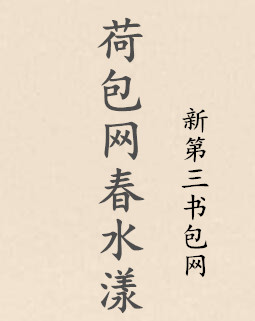 荷包网春水漾
新第三书包网